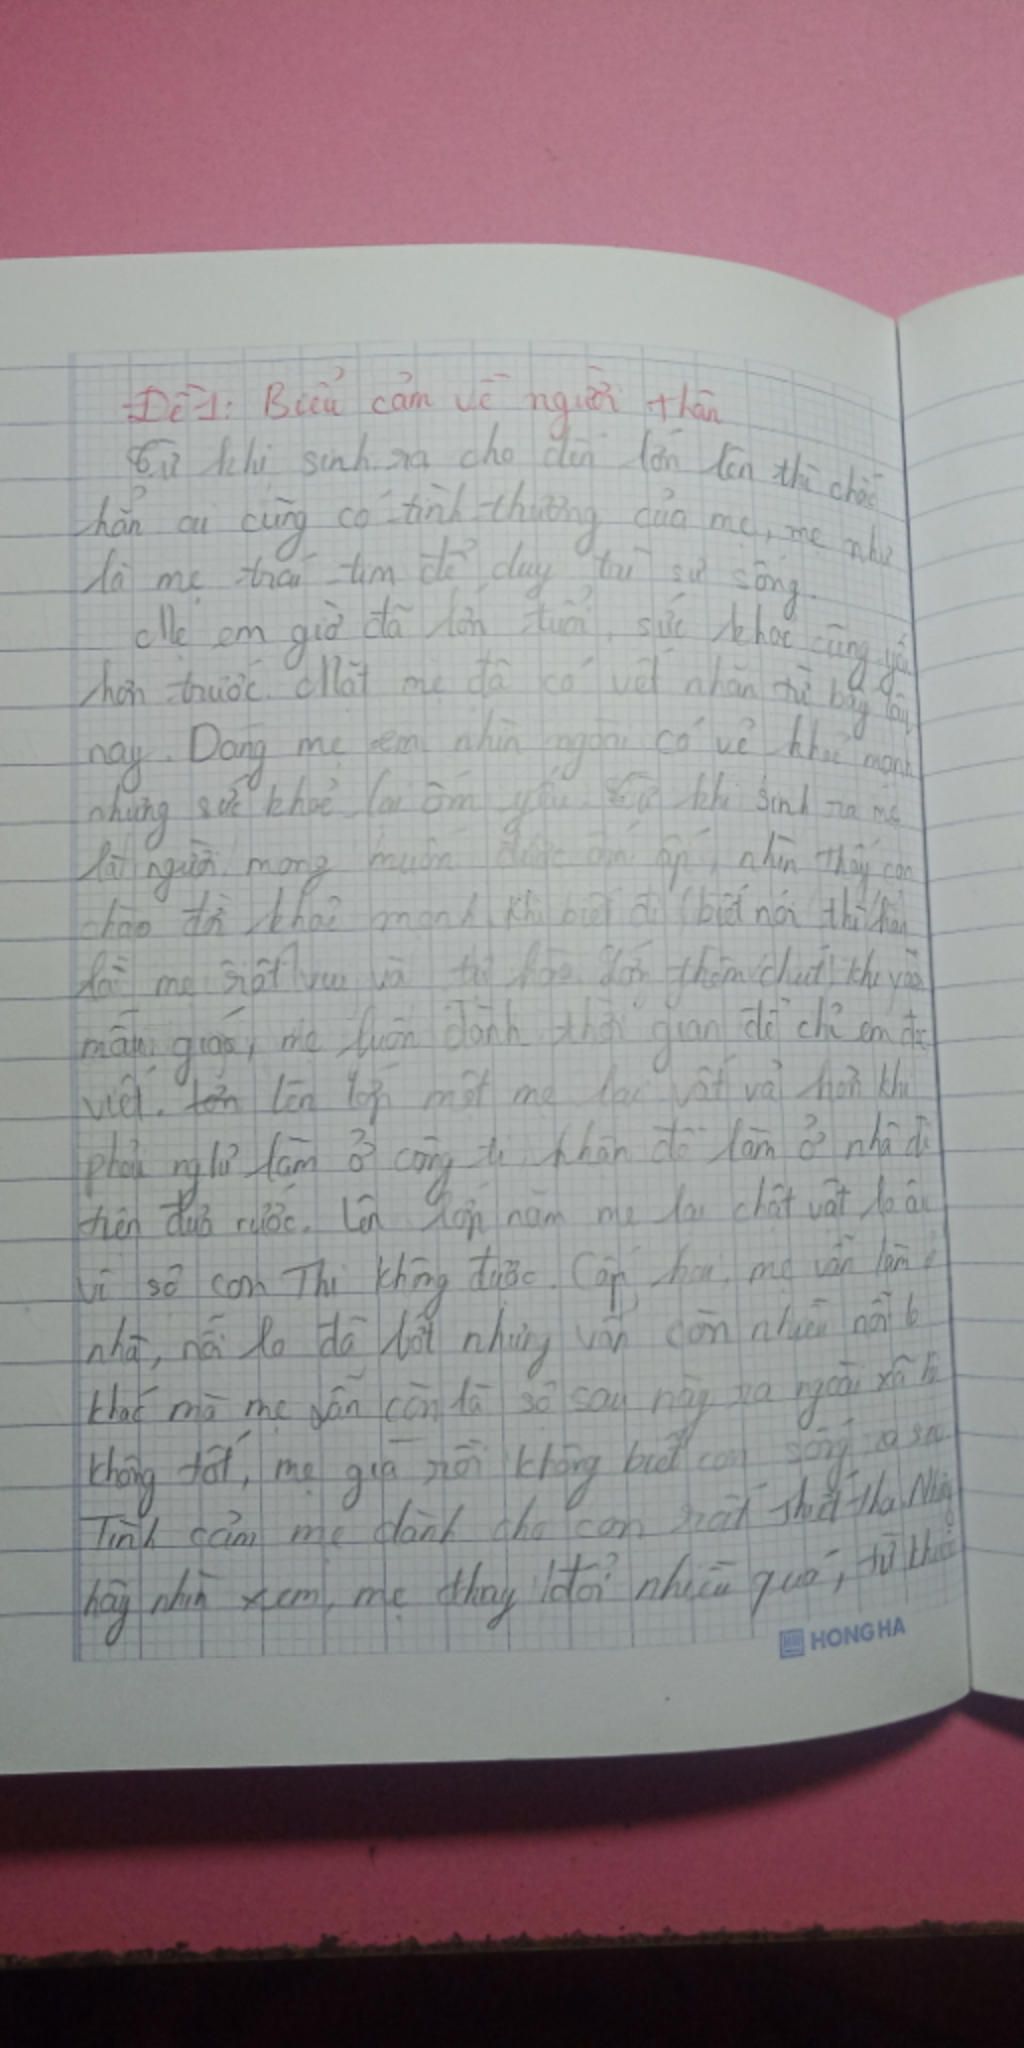 Đề 1: Biểu cảm về người thân
Từ khi sinh ra cho đến lớn lên thì chắc
hẳn ai cũng có tình thương của mẹ, mẹ như
là mẹ trái tim để duy trì sự sống.
Mẹ em giờ đã lớn tuổi, sức khoẻ cũng yếu
hơn trước. Mắt mẹ đã có vết nhăn từ bấy lâu
nay. Dáng mẹ em nhìn ngoài có vẻ khoẻ mạnh
nhưng sức khoẻ lại ốm yếu. Từ khi sinh ra mẹ
là người mong muốn được ôm ấp, nhìn thấy con
chào đời khoẻ mạnh. Khi biết đi, biết nói thì hẳn
là mẹ rất vui và tự hào. Lớn thêm chút, khi vào
mẫu giáo, mẹ luôn dành thời gian để chỉ em đọc
viết. Lên lớp một mẹ lại vất vả hơn khi
phải nghỉ làm ở công ti, nhận đồ làm ở nhà để
tiện đưa rước. Lên lớp năm mẹ lại chật vật lo âu
vì sợ con Thi không được. Cấp hai, mẹ vẫn làm ở
nhà, nỗi lo đã bớt nhưng vẫn còn nhiều nỗi
khác mà mẹ vẫn còn là sợ sau này ra ngoài xã
không tốt, mẹ già rồi không biết con sống ra sao
Tình cảm mẹ dành cho con rất thiết tha.
hãy nhìn xem, mẹ thay đổi nhiều quá, từ
HONG HA